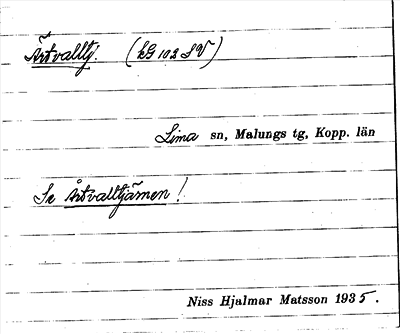 Ärtvalltj. (kG 102 SV)
Lima sn, Malungs tg, Kopp. län
Se Ärtvalltjärnen!
Niss Hjalmar Matsson 1935.